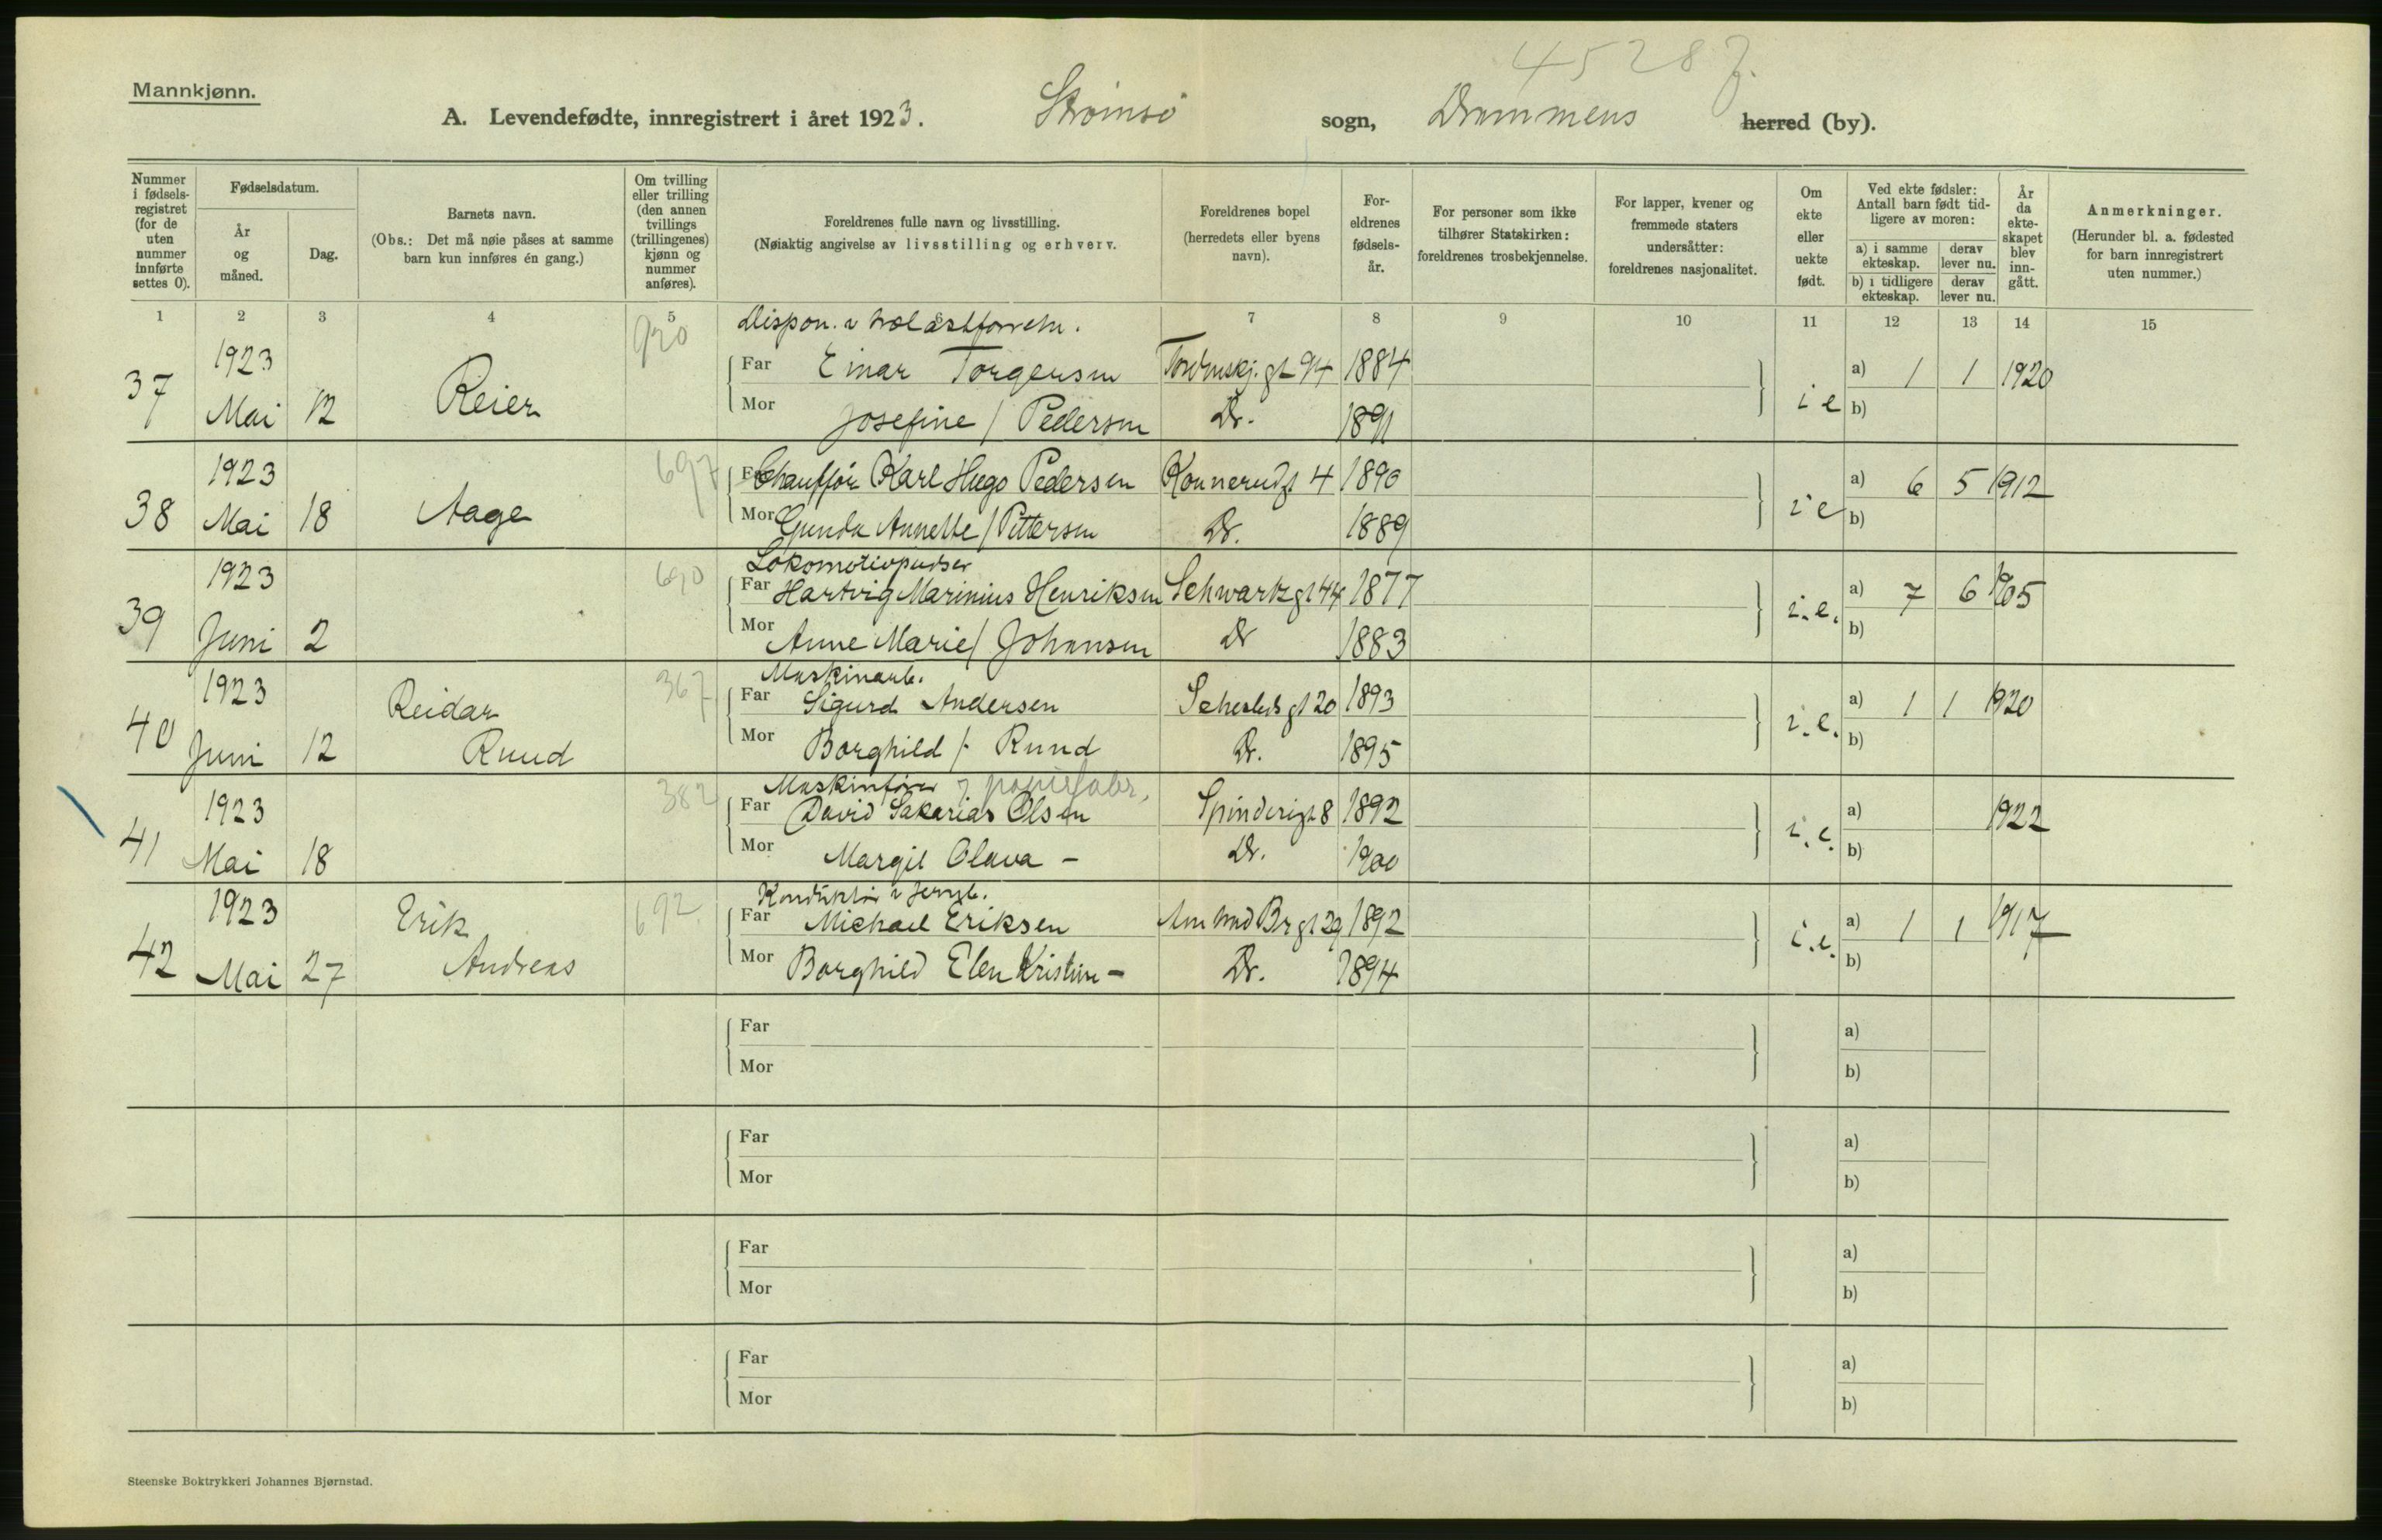 4528
Mannkjønn.
A. Levendefødte, innregistrert i året 1923. Strømsø sogn, Drammens herred (by).
Nummer i fødsels-registret (for de uten nummer innførte settes 0).
Fødselsdatum.
År og måned.
Dag.
Barnets navn.
(Obs.: Det må nøie påses at samme barn kun innføres én gang.)
Om tvilling eller trilling (den annen tvillings (trillingenes) kjønn og nummer anføres).
Foreldrenes fulle navn og livsstilling.
(Nøiaktig angivelse av livsstilling og erhverv.
Foreldrenes bopel (herredets eller byens navn).
For-eldrenes fødsels-år.
For personer som ikke tilhører Statskirken: foreldrenes trosbekjennelse.
For lapper, kvener og fremmede staters undersåtter: foreldrenes nasjonalitet.
Om ekte eller uekte født.
Ved ekte fødsler: Antall barn født tid-ligere av moren:
a) i samme ekteskap.
derav lever nu.
b) i tidligere ekteskap.
derav lever nu.
År da ekte-skapet blev inn-gått.
Anmerkninger.
(Herunder bl. a. fødested for barn innregistrert uten nummer.)
1 2 3 4 5 6 7 8 9 10 11 12 13 14 15
920 Dispon.
37 1923 Mai 12 Reier
Far Einar Torgersen Tordenskj.gt 94 1884 i e a) 1 1 1920
Mor Josefine / Pedersen Dr. 1891 b)
697
38 1923 Mai 18 Aage
Far Chauffør Karl Hugo Pedersen Konnerudgt 4 1890 i e a) 6 5 1912
Mor Gunda Annette / Pettersen Dr. 1889 b)
690 Lokomotivpudser
39 1923 Juni 2
Far Hartvig Marinius Henriksen Schwartzgt 44 1877 i.e. a) 7 6 1905
Mor Anne Marie / Johansen Dr 1883 b)
367 Maskinarb.
40 1923 Juni 12 Reidar Ruud
Far Sigurd Andersen 20 1893 i.e. a) 1 1 1920
Mor Borghild / Ruud Dr. 1895 b)
382 Maskinfører papirfabr.
41 1923 Mai 18
Far David Sakarias Olsen Spinderigt 8 1892 i.e. a) 1922
Mor Margit Olava - Dr. 1900 b)
692 Konduktør v Jernb.
42 1923 Mai 27 Erik Andreas
Far Michael Eriksen 29 1892 i.e. a) 1 1 1917
Mor Borghild Elen Kristine - Dr. 1894 b)
Far a)
Mor b)
Far a)
Mor b)
Far a)
Mor b)
Far a)
Mor b)
Steenske Boktrykkeri Johannes Bjørnstad.